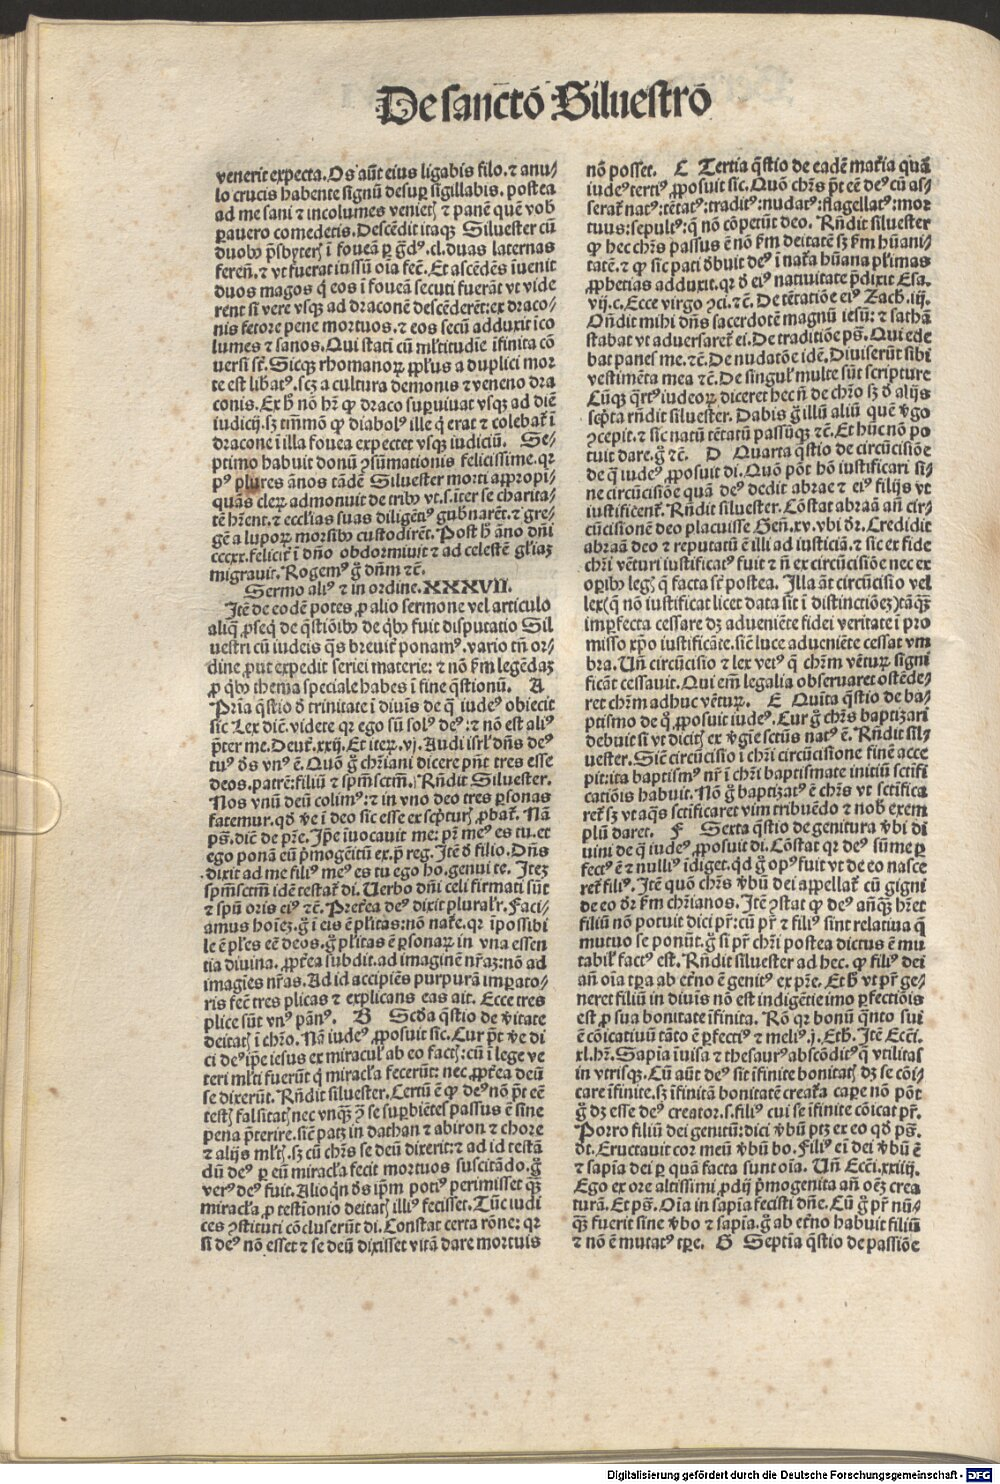 De sanctō Siluestrō
venerit expecta. Os aūt eius ligabis filo. ⁊ anu/
lo crucis habente signū desuꝑ sigillabis. postea
ad me sani ⁊ incolumes venietꝭ ⁊ panē quē vob̄
ꝑauero comedetis. Descēdit itaqꝫ Siluester cū
duobꝰ p̄sbyterꝭ ī foueā ꝑ gᷓdꝰ .cl. duas laternas
ferēn̄. ⁊ vt fuerat iussū oīa fec̄. Et ascēdēs īuenit
duos magos q̄ eos ī foueā secuti fuerāt vt vide
rent si vere vsqꝫ ad draconē descēderēt: ex draco/
nis fetore pene mortuos. ⁊ eos secū adduxit īco
lumes ⁊ sanos. Qui statī cū mĺtitudīe īfinita cō
uersi sc̄. Sicqꝫ rhomanoꝝ ppĺus a duplici mor
te est libatꝰ. scꝫ a cultura demonis ⁊ veneno dra
conis. Ex h̄ nō hr̄ ꝙ draco suꝑuiuat vsqꝫ ad diē
iudicij. sꝫ tm̄mō ꝙ diabolꝰ ille q̄ erat ⁊ colebat̄ ī
dracone ī illa fouea expectet vsqꝫ iudiciū. Se/
ptimo habuit donū ꝯsūmationis felicissime. qꝛ
pꝰ plures ānos tādē Siluester morti appropī/
quās cleꝝ admonuit de tribꝰ vt .s. īter se charita/
tē hr̄ent. ⁊ ecclīas suas diligētiꝰ gub̄narēt. ⁊ gre/
gē a lupoꝝ morsibꝰ custodirēt. Post h̄ āno dn̄i
cccxx. felicit̄ ī dn̄o obdormiuit ⁊ ad celestē gĺiaꝫ
migrauit. Rogemꝰ gͦ dn̄m ⁊c̄.
Sermo aliꝰ ⁊ in ordine. XXXVII.
Itē de eodē potes ꝓ alio sermone vel articulo
aliq̄ ꝓseq̄ de q̄stiōibꝰ de qͥbꝰ fuit disputatio Sil
uestri cū iudeis qᷓs breuit̄ ponamꝰ. vario tn̄ or/
dine ꝓut expedit seriei materie: ⁊ nō ẜm legēdaꝫ
ꝓ qͥbꝰ thema speciale habes ī fine q̄stionū. A
Prīa q̄stio ď trinitate ī diuīs de q̄ iudeꝰ obiecit
sic Lex diē. videte qꝛ ego sū solꝰ deꝰ: ⁊ nō est aliꝰ
p̄ter me. Deut̄. xxij. Et iteꝝ .vj. Audi isrĺ dn̄s deꝰ
tuꝰ ďs vnꝰ ē. Quō gͦ chr̄iani dicere pn̄t tres esse
deos. patrē: filiū ⁊ spm̄sctm̄. Rn̄dit Siluester.
Nos vnū deū colimꝰ: ⁊ in vno deo tres ꝑsonas
fatemur. qď ve ī deo sic esse ex sc̄pturꝭ ꝓbat̄. Nā
ps̄. diē de pr̄e. Ip̄e īuocauit me: pr̄ meꝰ es tu. et
ego ponā eū p̄mogēitū ex. p̄ reg. Itē ď filio. Dn̄s
dixit ad me filiꝰ meꝰ es tu ego ho. genui te. Iteꝫ
spm̄sctm̄ idē testat̄ di. Verbo dn̄i celi firmati sūt
⁊ spū oris eiꝰ ⁊c̄. Pret̄ea deꝰ dixit pluralr̄. Faci/
amus hoīeꝫ. gͦ ī eis ē pĺitas: nō nat̄e. qꝛ īpossibi
le ē pĺes eē deos. gͦ pĺitas ē ꝑsonaꝝ in vna essen
tia diuina. ꝓpt̄ea subdit. ad imaginē nr̄aꝫ: nō ad
imagīes nr̄as. Ad id accipiēs purpurā imꝑato/
ris fec̄ tres plicas ⁊ explicans eas ait. Ecce tres
plice sūt vnꝰ pānꝰ. B Scďa q̄stio de v̄itate
deitatꝭ ī chr̄o. Nā iudeꝰ ꝓposuit sic. Cur pt̄ ve di
ci deꝰ ip̄e iesus ex miracuĺ ab eo factꝭ: cū ī lege ve
teri mĺti fuerūt q̄ miracĺa fecerūt: nec ꝓpt̄ea deū
se dixerūt. Rn̄dit siluester. Certū ē ꝙ deꝰ nō pt̄ eē
testꝭ falsitatꝭ nec vnqᷓꝫ ꝯ̄ se suꝑbiētes passus ē sine
pena p̄terire. sic̄ patꝫ in dathan ⁊ abiron ⁊ chore
⁊ alijs mĺtꝭ. sꝫ cū chr̄s se deū dixerit: ⁊ ad id testā
dū deꝰ ꝑ eū miracĺa fecit mortuos suscitādo. gͦ
verꝰ deꝰ fuit. Alioqͥn ďs ip̄m potiꝰ perimisset qᷓꝫ
miracĺa ꝓ testīonio deitatꝭ illiꝰ fecisset. Tūc iudi
ces ꝯstituti cōcluserūt di. Constat certa rōne: qꝛ
si deꝰ nō esset ⁊ se deū dixisset vitā dare mortuis
nō posset. C Tertia q̄stio de eadē mat̄ia quā
iudeꝰ tertiꝰ ꝓposuit sic. Quō chr̄s pt̄ eē deꝰ cū as/
serat̄ natꝰ: tētatꝰ: traditꝰ: nudatꝰ: flagellatꝰ: mor
tuus: sepultꝰ: q̄ nō cōpetūt deo. Rn̄dit siluester
ꝙ hec chr̄s passus ē nō ẜm deitatē sꝫ ẜm hūani/
tatē. ⁊ ꝙ sic pati ďbuit deꝰ ī nat̄a hūana pĺimas
ꝓphetias adduxit. qꝛ ď eiꝰ natiuitate p̄dixit Esa.
vij. c. Ecce virgo ꝯci. ⁊c̄. De tētatiōe eiꝰ Zach. iij.
On̄dit mihi dn̄s sacerdotē magnū iesū: ⁊ sathā
stabat vt aduersaret̄ ei. De traditiōe ps̄. Qui ede
bat panes me. ⁊c̄. De nudatōe idē. Diuiserūt sibi
vestimēta mea ⁊c̄. De singuĺ multe sūt scripture
Cūqꝫ qr̄tꝰ iudeoꝝ diceret hec n̄ de chr̄o sꝫ ď alijs
sc̄pta rn̄dit siluester. Dabis gͦ illū aliū quē v̄go
ꝯcepit. ⁊ sic natū tētatū passūqꝫ ⁊c̄. Et hūc nō po
tuit dare. gͦ ⁊c̄. D Quarta q̄stio de circūcisiōe
de q̄ iudeꝰ ꝓposuit di. Quō pōt hō iustificari si/
ne circūcisiōe quā deꝰ dedit abrae ⁊ eiꝰ filijs vt
iustificent̄. Rn̄dit siluester. Cōstat abraā an̄ cir/
cūcisionē deo placuisse Gen̄. xv. vbi dr̄. Credidit
abraā deo ⁊ reputatū ē illi ad iusticiā. ⁊ sic ex fide
chr̄i vēturi iustificatꝰ fuit ⁊ n̄ ex circūcisiōe nec ex
oꝑibꝰ legꝭ q̄ facta sc̄ postea. Illa āt circūcisio vel
lex (q̄ nō iustificat licet data sit ī distinctiōeꝫ) tāqᷓꝫ
imꝑfecta cessare dꝫ adueniēte fidei veritate ī pro
misso xp̄o iustificāte. sic̄ luce adueniēte cessat vm
bra. Vn̄ circūcisio ⁊ lex vetꝰ q̄ chr̄m vēturū signi
ficāt cessauit. Qui em̄ legalia obseruaret ostēde/
ret chr̄m adhuc vēturū. E Quīta q̄stio de ba/
ptismo de q̄ ꝓposuit iudeꝰ. Cur gͦ chr̄s baptizari
debuit si vt dicitꝭ ex v̄gīe sctūs natꝰ ē. Rn̄dit sil/
uester. Sic̄ circūcisio ī chr̄i circūcisione finē acce
pit: ita baptismꝰ nr̄ ī chr̄i baptismate initiū sctīfi
catiōis habuit. Nō gͦ baptizatꝰ ē chr̄s vt sctīfica
ret̄ sꝫ vt aqᷓs sctīficaret vim tribuēdo ⁊ nob̄ exem
plū daret. F Sexta q̄stio de genitura v̄bi di
uini de q̄ iudeꝰ ꝓposuit di. Cōstat qꝛ deꝰ sūme ꝑ
fectꝰ ē ⁊ nulliꝰ īdiget. qͥd gͦ opꝰ fuit vt de eo nasce
ret̄ filiꝰ. Itē quō chr̄s v̄bū dei appellat̄ cū gigni
de eo dr̄ ẜm chr̄ianos. Itē ꝯstat ꝙ deꝰ an̄qᷓꝫ hr̄et
filiū nō potuit dici pr̄: cū pr̄ ⁊ filiꝰ sint relatiua q̄
mutuo se ponūt. gͦ si pr̄ chr̄i postea dictus ē mu
tabiĺ factꝰ est. Rn̄dit siluester ad hec. ꝙ filiꝰ dei
an̄ oīa tꝑa ab et̄no ē genitꝰ ex pr̄e. Et h̄ vt pr̄ ge/
neret filiū in diuīs nō est indigētie imo ꝑfectiōis
est ꝓ sua bonitate īfinita. Rō qꝛ bonū qᷓnto sui
ē cōicatiuū tāto ē ꝑfectiꝰ ⁊ meliꝰ. j. Eth. Itē Ecci.
xl. hr̄. Sapīa īuisa ⁊ thesaurꝰ abscōditꝰ q̄ vtilitas
in vtrisqꝫ. Cū aūt deꝰ sit īfinite bonitatꝭ dꝫ se cōi/
care īfinite. sꝫ īfinitā bonitatē creat̄a caꝑe nō pōt
gͦ dꝫ esse deꝰ creator .s. filiꝰ cui se īfinite cōicat pr̄.
Porro filiū dei genitū: dici v̄bū ptꝫ ex eo qď ps̄.
ďt. Eructauit cor meū v̄bū bo. Filiꝰ ei dei v̄bū ē
⁊ sapīa dei ꝑ quā facta sunt oīa. Vn̄ Ecci. xxiiij.
Ego ex ore altissimi ꝓdij p̄mogenita an̄ oēꝫ crea
turā. Et ps̄. Oīa in sapīa fecisti dn̄e. Cū gͦ pr̄ nū/
qᷓꝫ fuerit sine v̄bo ⁊ sapīa. gͦ ab et̄no habuit filiū
⁊ nō ē mutatꝰ tꝑe. G Septīa q̄stio de passiōe
Digitalisierung gefördert durch die Deutsche Forschungsgemeinschaft - DFG